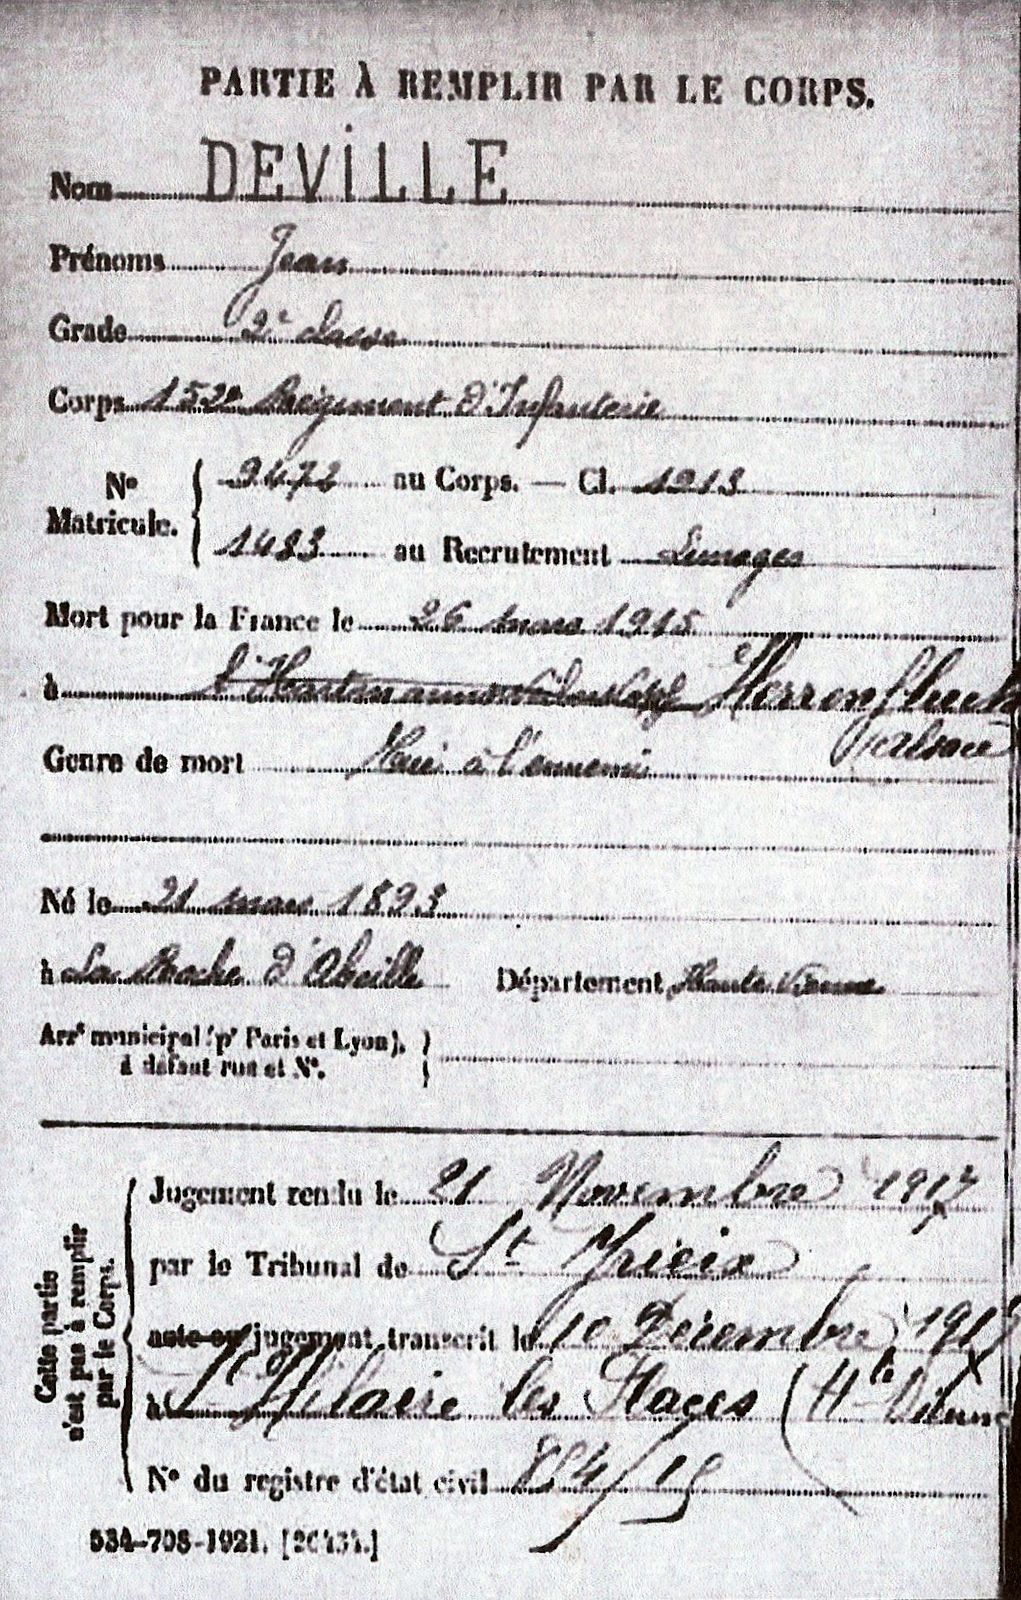 PARTIE À REMPLIR PAR LE CORPS.
Nom DEVILLE
Prénoms Jean
Grade 2e classe
Corps 152e Régiment d'Infanterie
No Matricule. { 9472 au Corps. — Cl. 1913
1483 au Recrutement Limoges
Mort pour la France le 26 mars 1915
à Herrenfluch
Alsace
Genre de mort Tué à l'ennemi
Né le 21 mars 1893
à La Roche d'Abeille Département Haute Vienne
Arrt municipal (pr Paris et Lyon), }
à défaut rue et No.
Cette partie n'est pas à remplir par le Corps.
Jugement rendu le 21 Novembre 1917
par le Tribunal de St Yrieix
acte ou jugement transcrit le 10 Décembre 1917
à St Hilaire les Places (Hte Vienne
No du registre d'état civil
534-708-1921. [26434.]